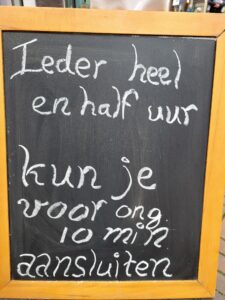 Ieder heel
en half uur
kun je
voor ong.
10 min
aansluiten